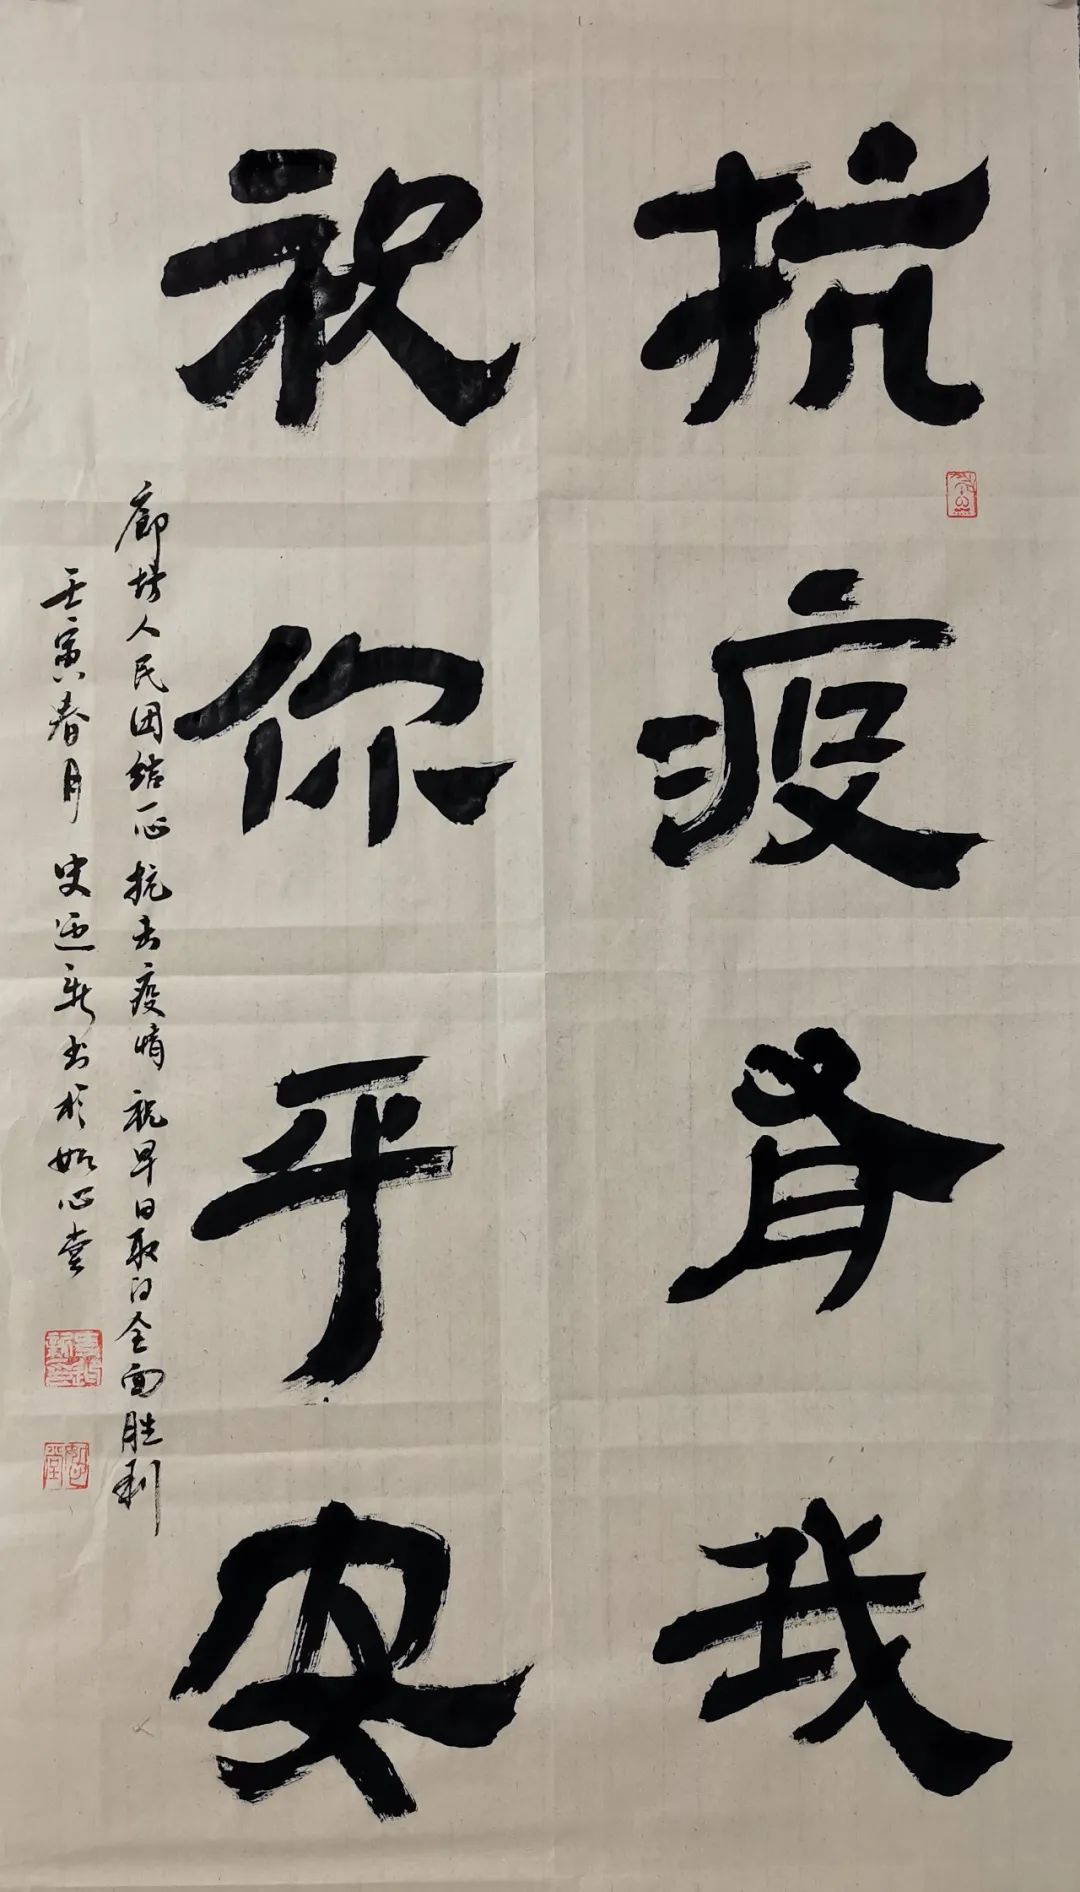 抗疫有我
祝你平安
廊坊人民团结一心抗击疫情祝早日取得全面胜利
壬寅春月史迎新书於如心堂